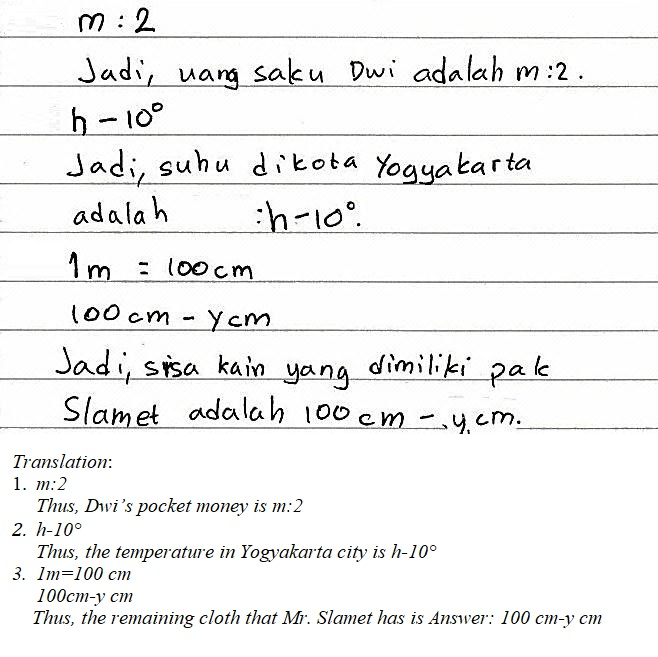 m : 2
Jadi, uang saku Dwi adalah m:2.
h - 10°
Jadi, suhu dikota Yogyakarta
adalah :h-10°.
1m = 100cm
100 cm - ycm
Jadi, sisa kain yang dimiliki pak
Slamet adalah 100 cm - y cm.
Translation:
1. m:2
Thus, Dwi's pocket money is m:2
2. h-10°
Thus, the temperature in Yogyakarta city is h-10°
3. 1m=100 cm
100cm-y cm
Thus, the remaining cloth that Mr. Slamet has is Answer: 100 cm-y cm